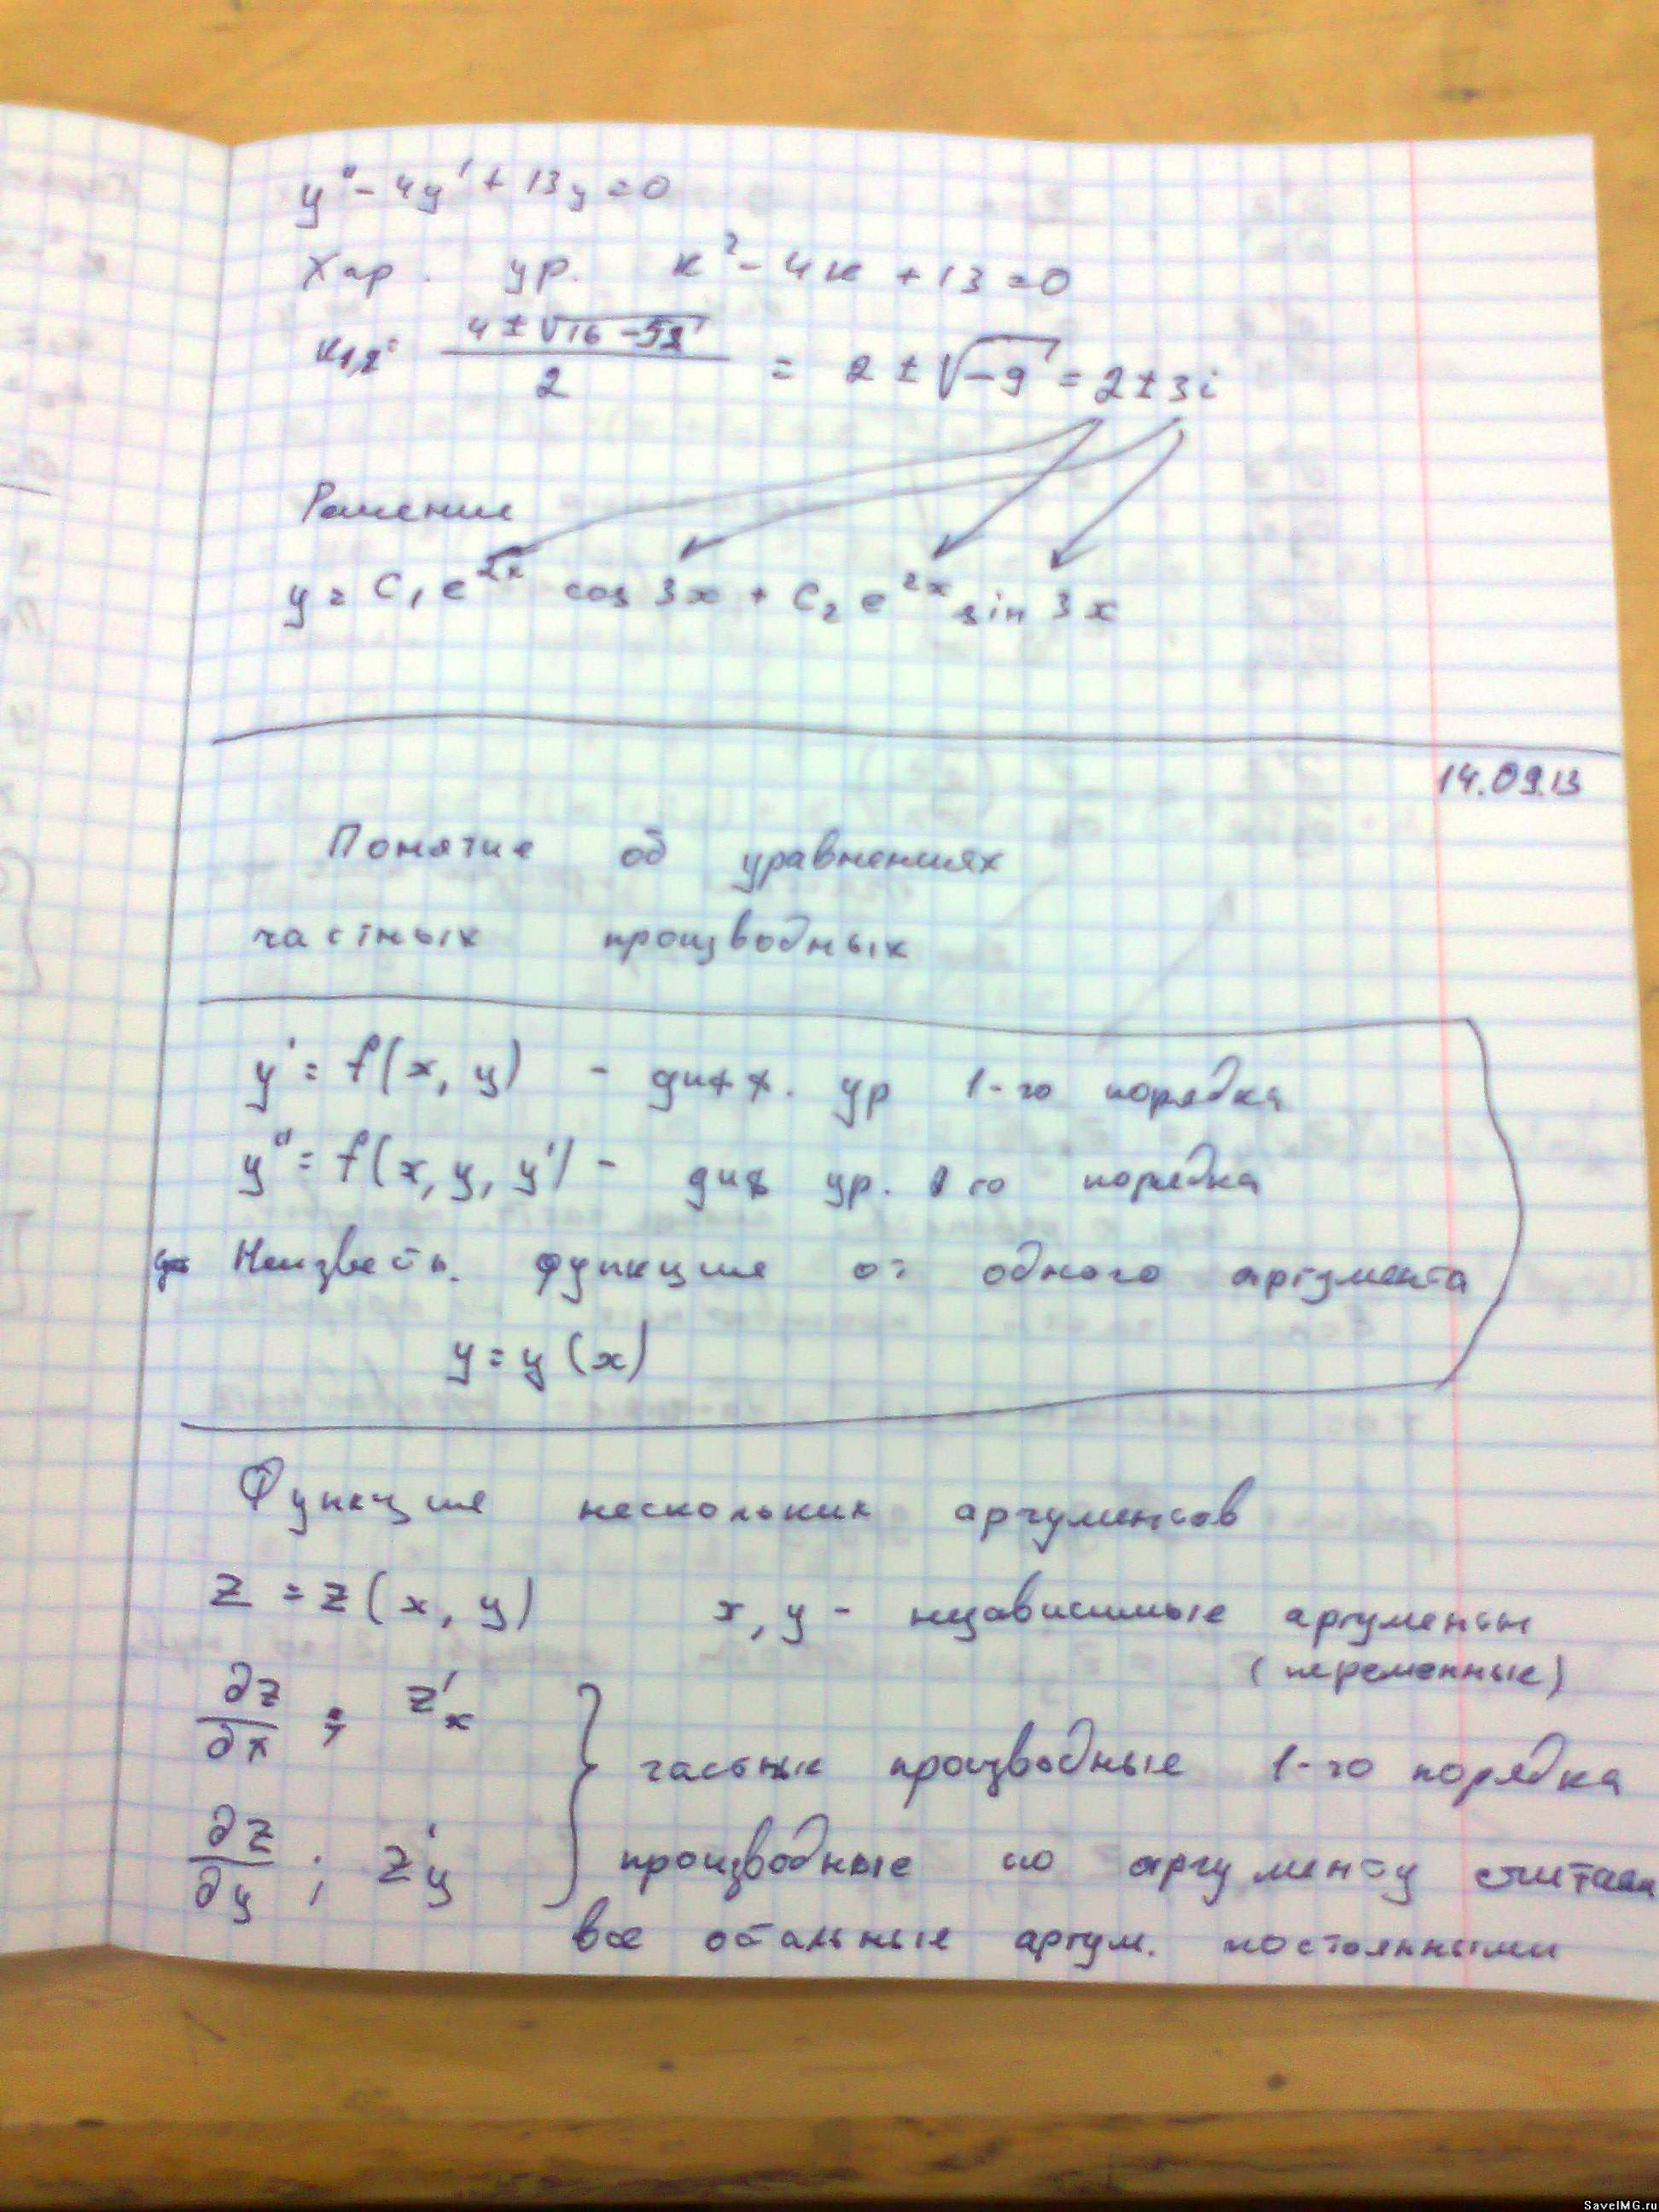 y'' - 4y' + 13y = 0
Хар. ур. к² - 4к + 13 = 0
к1,2 = (4 ± √(16 - 52)) / 2 = 2 ± √-9 = 2 ± 3i
Решение
y = C₁ e^2x cos 3x + C₂ e^2x sin 3x
14.09.13
Понятие об уравнениях
частных производных
y' = f(x, y) - дифф. ур 1-го порядка
y'' = f(x, y, y') - диф ур. го порядка
Неизвестн. функция от одного аргумента
y = y(x)
Функция нескольких аргументов
z = z(x, y) x, y - независимые аргументы
(переменные)
∂z/∂x ; z'x
частные производные 1-го порядка
∂z/∂y ; z'y производные по аргументу считаем
все остальные аргум. постоянными
SaveIMG.ru